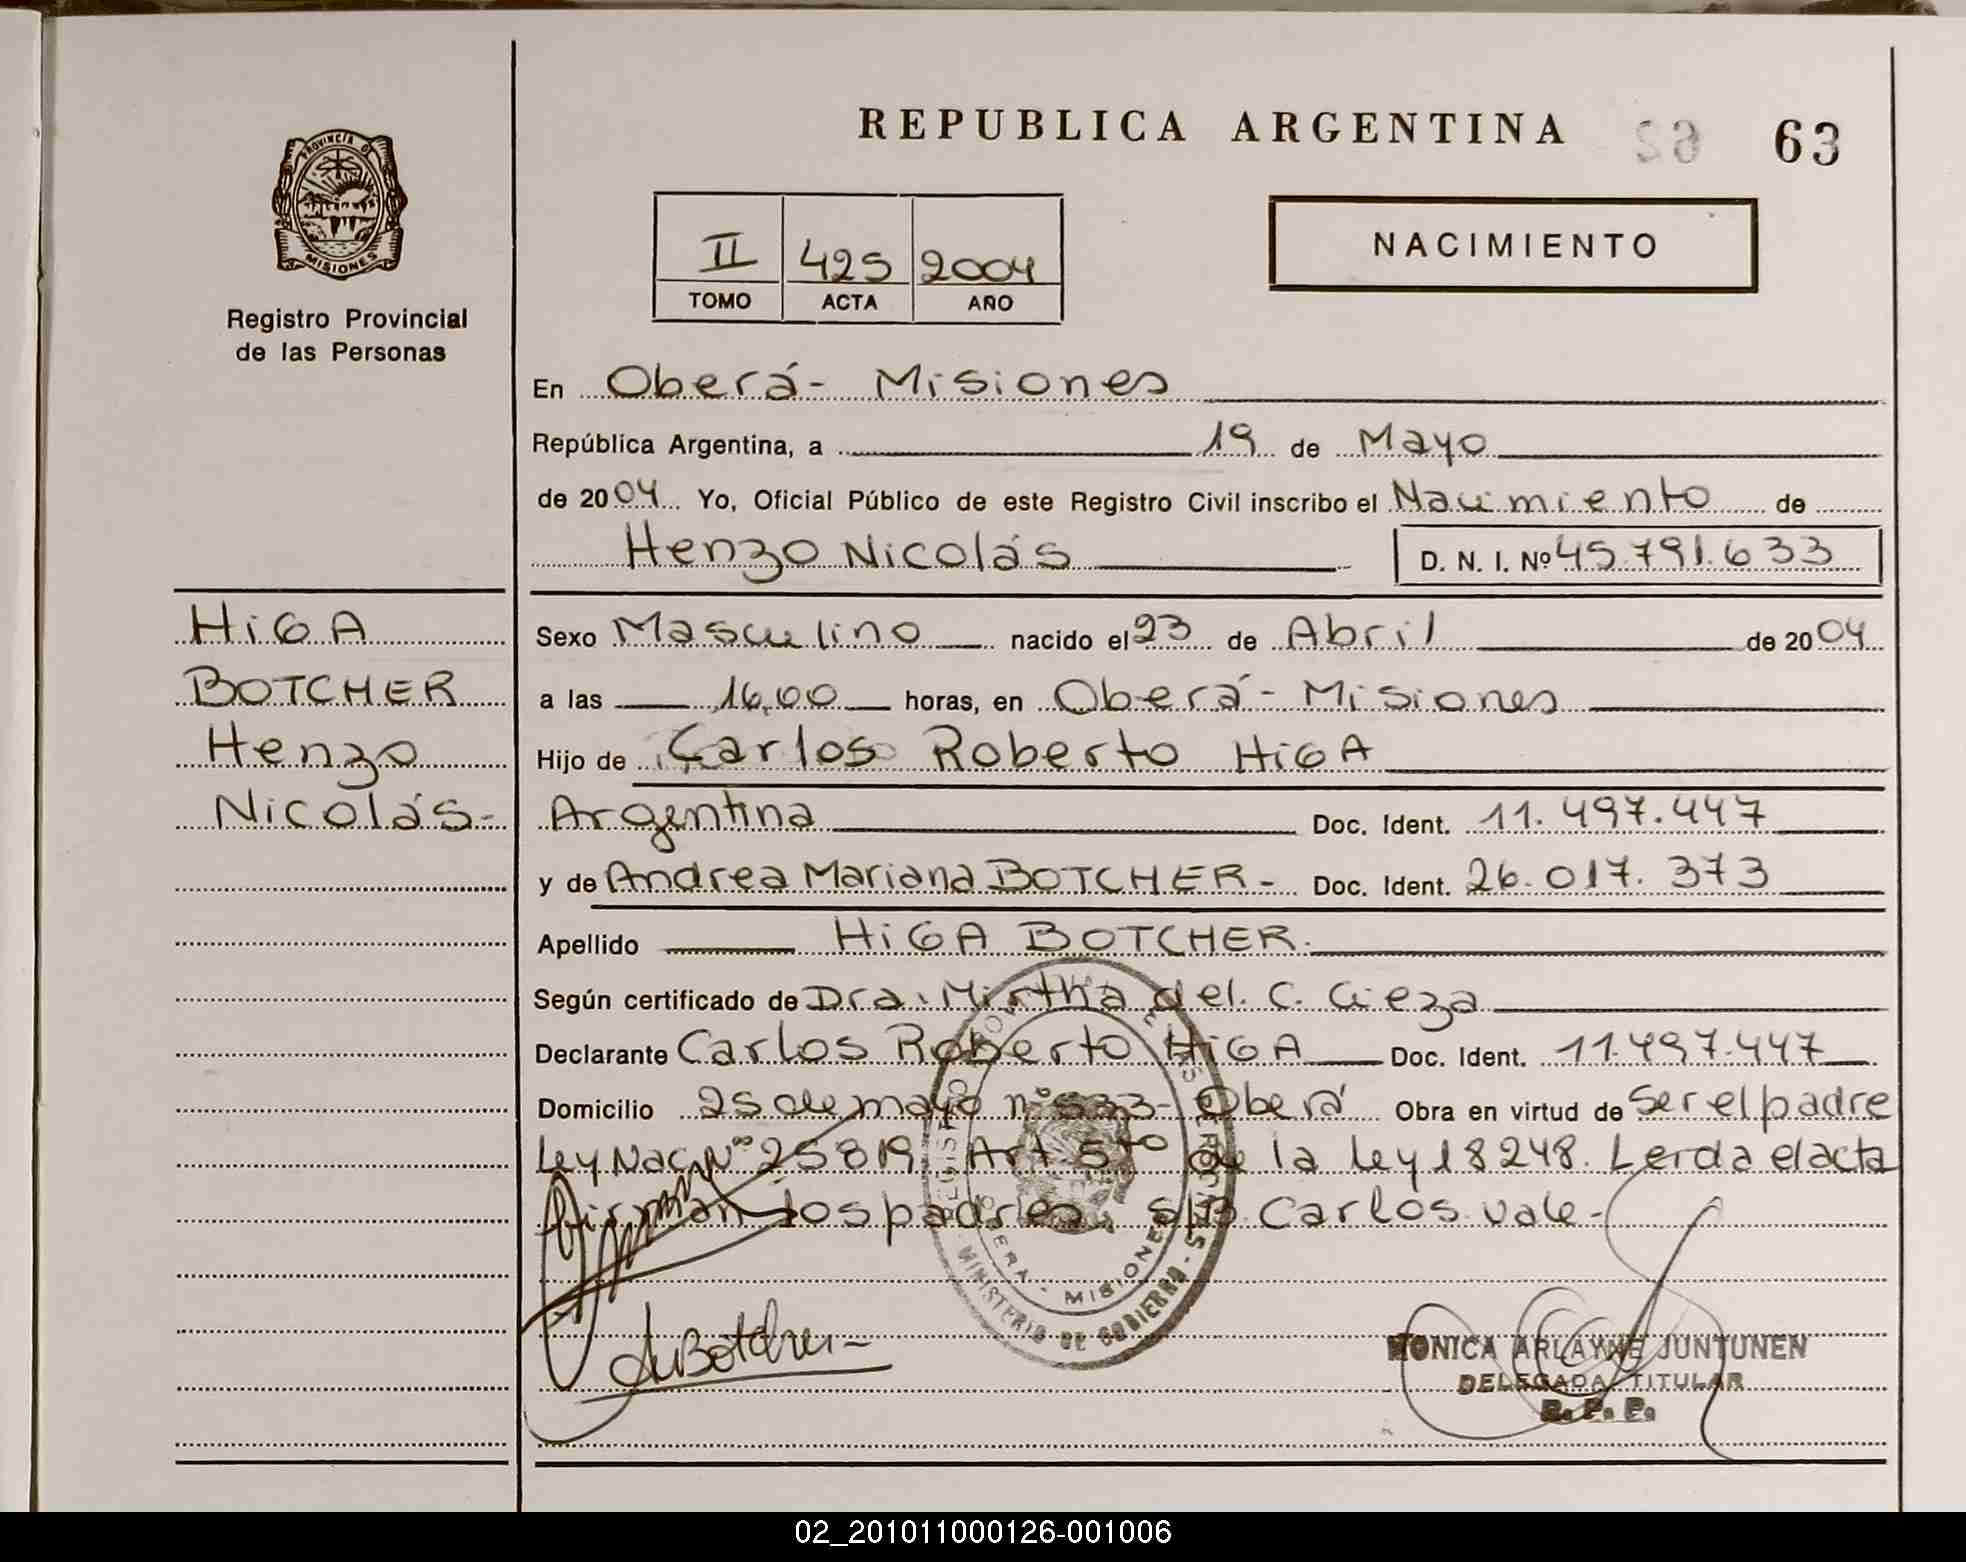 REPUBLICA ARGENTINA 63
PROVINCIA DE MISIONES
Registro Provincial
de las Personas
II 425 2004
TOMO ACTA AÑO
NACIMIENTO
En Oberá - Misiones
República Argentina, a 19 de Mayo
de 2004 Yo, Oficial Público de este Registro Civil inscribo el Nacimiento de
Henzo Nicolás D. N. I. Nº 45.791.633
HiGA
BOTCHER
Henzo
Nicolás-
Sexo Masculino nacido el 23 de Abril de 2004
a las 16,00 horas, en Oberá - Misiones
Hijo de Carlos Roberto HiGA
Argentina Doc. Ident. 11.497.447
y de Andrea Mariana BOTCHER - Doc. Ident. 26.017.373
Apellido HiGA BOTCHER.
Según certificado de Dra. Mirtha del C. Cieza
Declarante Carlos Roberto HiGA Doc. Ident. 11.497.447
Domicilio 25 de mayo nº 533 - Oberá Obra en virtud de Ser el padre
Ley Nac Nº 25819, Art 5to de la ley 18248. Leída el acta
firman los padres. s/b Carlos vale-
OBERA - MISIONES
MINISTERIO DE GOBIERNO
Botcher
MONICA ARLAYNE JUNTUNEN
DELEGADA TITULAR
R. P. P.
02_201011000126-001006